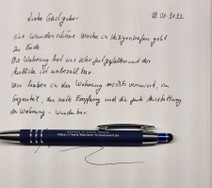 Liebe Gastgeber
Eine wunderschöne Woche in Heiligenhafen geht
zu Ende.
Die Wohnung hat uns sehr gut gefallen und der
Ausblick ist unbezahlbar.
Wir haben in der Wohnung nichts vermisst, im
Gegenteil, der nette Empfang und die gute Ausstattung
der Wohnung - wunderbar.